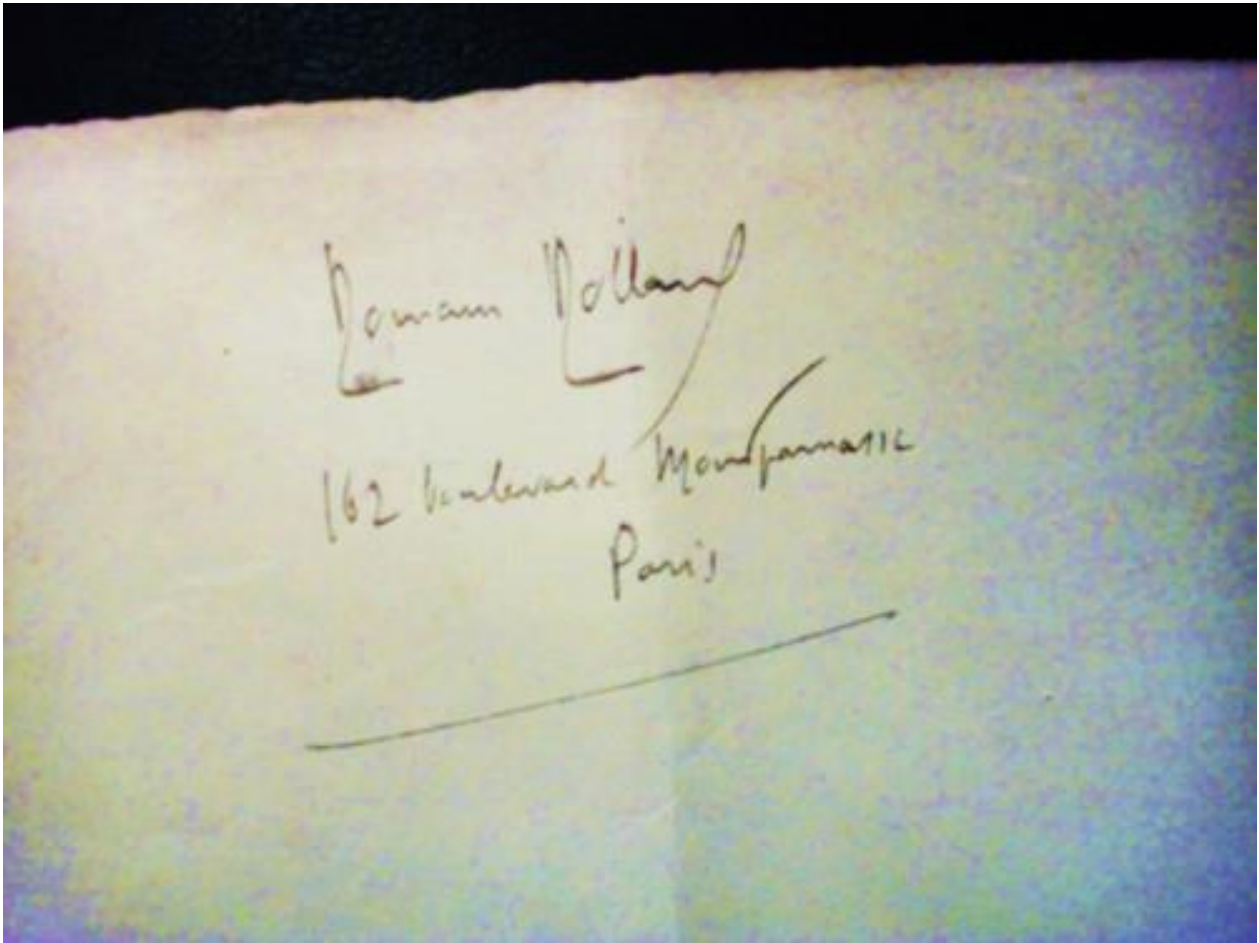 Romain Rolland
162 boulevard Montparnasse
Paris